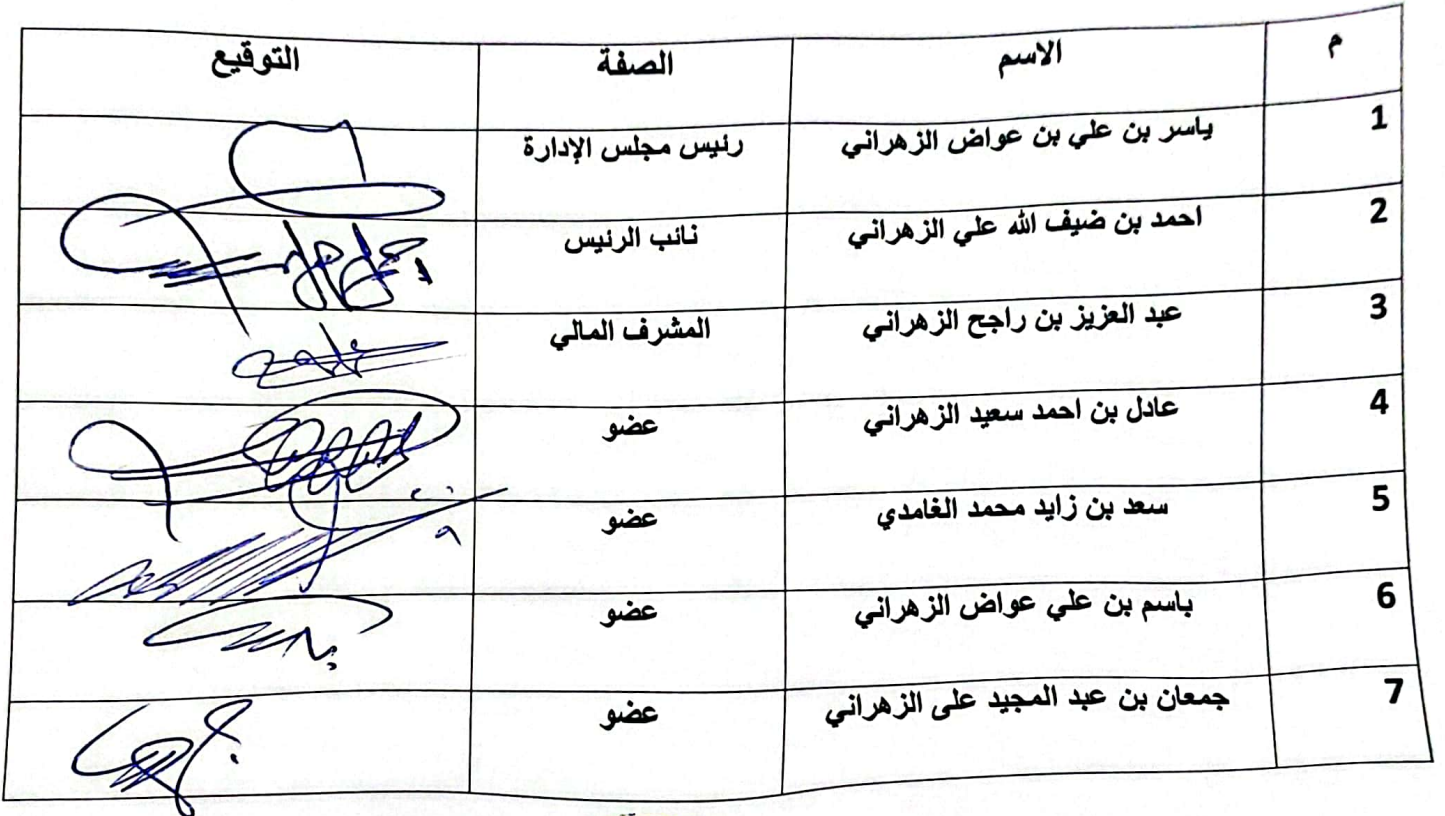 م الاسم الصفة التوقيع
1 ياسر بن علي بن عواض الزهراني رئيس مجلس الإدارة
2 احمد بن ضيف الله علي الزهراني نائب الرئيس
3 عبد العزيز بن راجح الزهراني المشرف المالي
4 عادل بن احمد سعيد الزهراني عضو
5 سعد بن زايد محمد الغامدي عضو
6 باسم بن علي عواض الزهراني عضو
7 جمعان بن عبد المجيد على الزهراني عضو